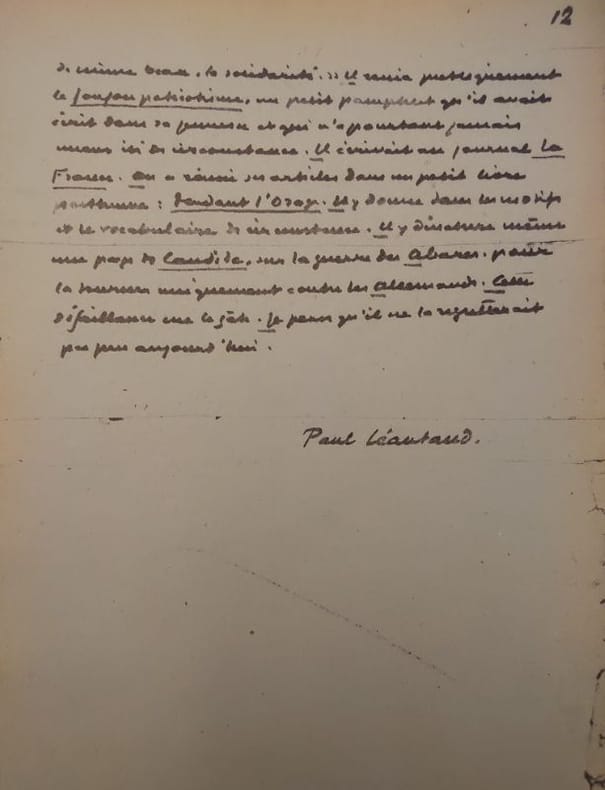 12
de même beau, la solidarité. » Il renia publiquement
le Joujou patriotisme, un petit pamphlet qu'il avait
écrit dans sa jeunesse et qui n'a pourtant jamais
mieux été de circonstance. Il écrivait au journal La
France. On a réuni ses articles dans un petit livre
posthume : Pendant l'Orage. Il y donne dans les motifs
et le vocabulaire de circonstance. Il y dénature même
une page de Candide, sur la guerre des Abares, pour
la tourner uniquement contre les Allemands. Cette
défaillance me le gâte. Je pense qu'il ne la regretterait
pas peu aujourd'hui.
Paul Léautaud.